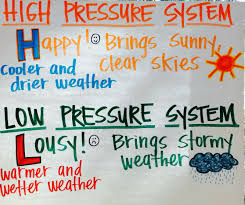 HIGH PRESSURE SYSTEM
Happy! Brings sunny,
cooler and clear skies
drier weather
LOW PRESSURE SYSTEM
Lousy! Brings stormy
warmer and weather
wetter weather